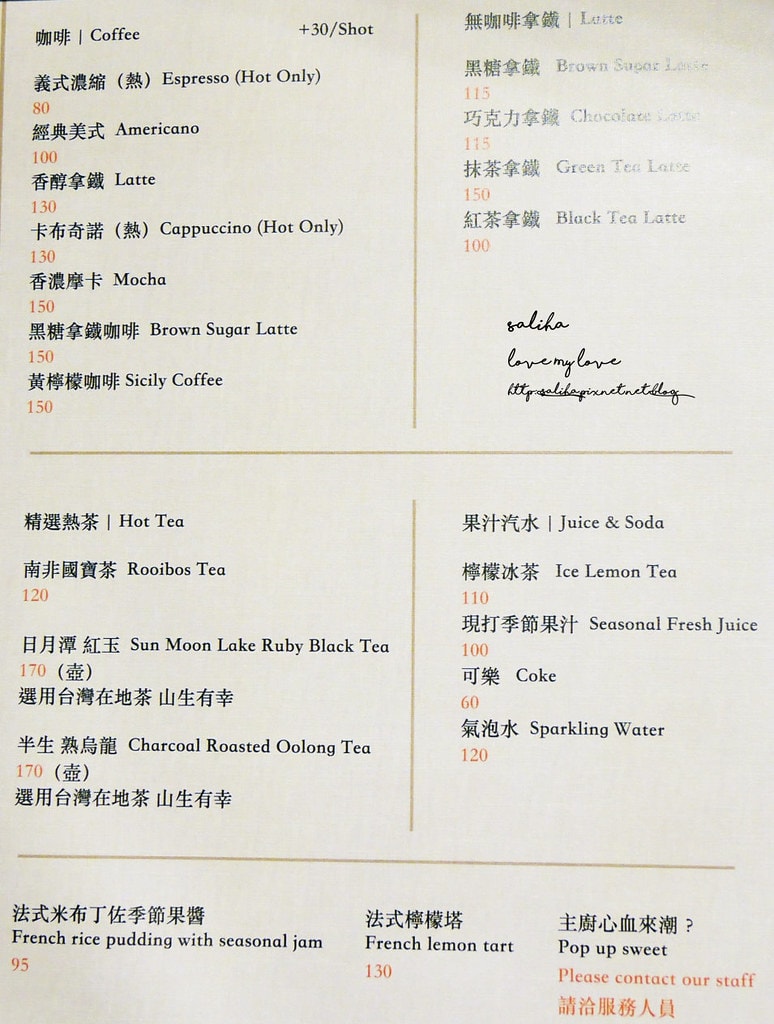 咖啡 | Coffee +30/Shot
義式濃縮（熱）Espresso (Hot Only)
80
經典美式 Americano
100
香醇拿鐵 Latte
130
卡布奇諾（熱）Cappuccino (Hot Only)
130
香濃摩卡 Mocha
150
黑糖拿鐵咖啡 Brown Sugar Latte
150
黃檸檬咖啡 Sicily Coffee
150
無咖啡拿鐵 | Latte
黑糖拿鐵 Brown Sugar Latte
115
巧克力拿鐵 Chocolate Latte
115
抹茶拿鐵 Green Tea Latte
150
紅茶拿鐵 Black Tea Latte
100
saliha
love my love
http:saliha.pixnet.net.blog
精選熱茶 | Hot Tea
南非國寶茶 Rooibos Tea
120
日月潭 紅玉 Sun Moon Lake Ruby Black Tea
170（壺）
選用台灣在地茶 山生有幸
半生 熟烏龍 Charcoal Roasted Oolong Tea
170（壺）
選用台灣在地茶 山生有幸
果汁汽水 | Juice & Soda
檸檬冰茶 Ice Lemon Tea
110
現打季節果汁 Seasonal Fresh Juice
100
可樂 Coke
60
氣泡水 Sparkling Water
120
法式米布丁佐季節果醬
French rice pudding with seasonal jam
95
法式檸檬塔
French lemon tart
130
主廚心血來潮？
Pop up sweet
Please contact our staff
請洽服務人員